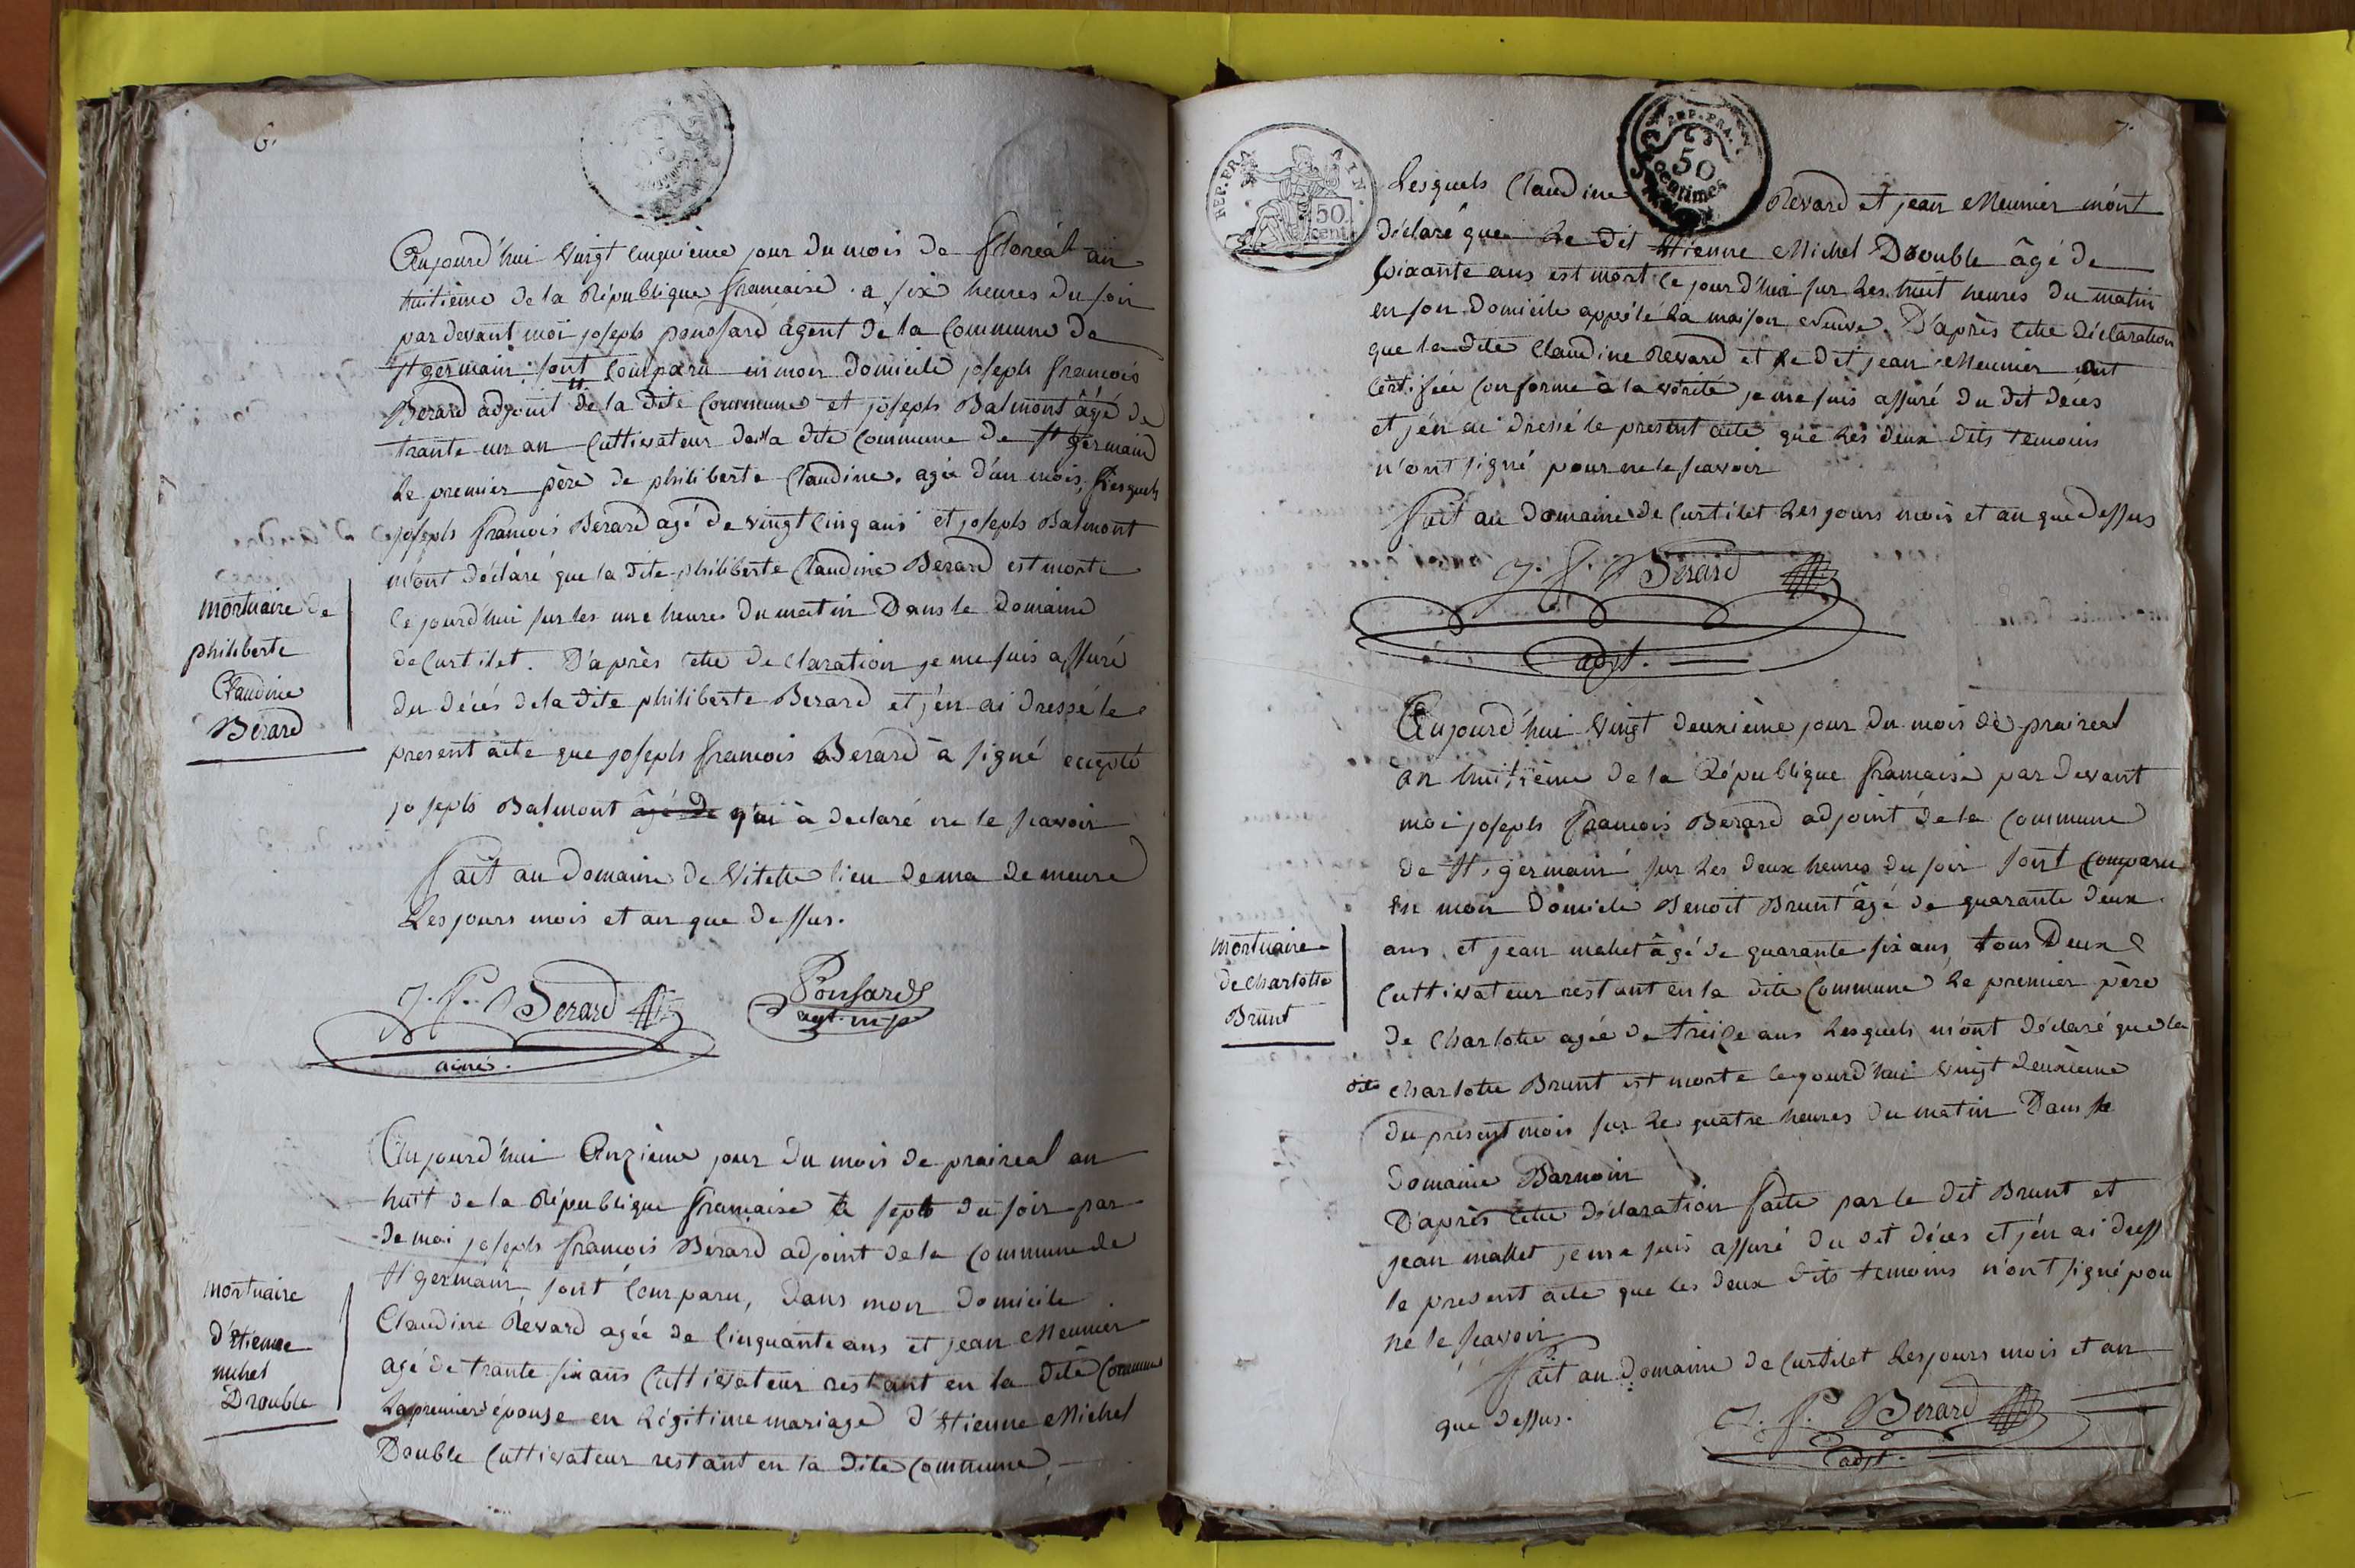 6.
Aujourd'hui vingt cinquième jour du mois de floréal an
huitième de la République francaise a six heures du soir
par devant moi joseph ponsard agent de la Commune de
St germain sont comparu en mon domicile joseph francois
Berard adjoint de la dite Commune et joseph Balmont âgé de
trante un an Cultivateur de la dite Commune de St germain
le premier père de philiberte Claudine. agée d'un mois, Lesquels
joseph francois Berard agé de vingt cinq ans et joseph Balmont
m'ont déclaré que la dite philiberte Claudine Berard est morte
ce jourd'hui sur les une heures du matin Dans le Domaine
de Curtilet. D'après cette declaration je me suis assuré
du décés de la dite philiberte Berard et j'en ai dressé le
present acte que joseph francois Berard a signé
joseph Balmont âgé de qui à declaré ne le scavoir
fait au Domaine de Vitette lieu de ma demeure
les jours mois et an que dessus.
mortuaire de
philiberte
Claudine
Berard
J. f. Berard
ainé.
Ponsard
agt. m-p-
Aujourd'hui Onzième jour du mois de praireal an
huit de la République francaise a sept du soir par
de moi joseph francois Berard adjoint de la Commune de
St germain, sont comparu, dans mon domicile
Claudine Revard agée de Cinquante ans et jean Meunier
agé de trante six ans Cultivateur restant en la dite Commune
La premier épouse en Légitime mariage d'Etienne Michel
Double Cultivateur restant en la dite Commune,
mortuaire
d'Etienne
michel
Drouble
7.
REP. FRA
50 cent.
REP. FRA.
50
centimes
Lesquels Claudine Revard et jean Meunier m'ont
déclaré que le dit Etienne Michel Drouble âgé de
soixante ans est mort ce jourd'hui sur les huit heures du matin
en son domicile appélé la maison neuve. D'après cette déclaration
que la dite Claudine Revard et le dit jean Meunier ont
certifiée conforme à la vérité je me suis assuré du dit décés
et j'en ai dressé le present acte que les deux dits temoins
n'ont signé pour ne le scavoir
fait au domaine de Curtilet les jours mois et an que dessus
J. f. Berard
adjt.
Aujourd'hui vingt deuxième jour du mois de praireal
an huitième de la République francaise par devant
moi joseph francois Berard adjoint de la Commune
de St. germain sur les deux heures du soir sont comparu
en mon domicile Benoit Brunt âgé de quarante deux
ans, et jean mallet âgé de quarante six ans, tous Deux
Cultivateur restant en la dite Commune le premier père
de Charlotte agée de treize ans Lesquels m'ont déclaré que la
dite Charlotte Brunt est morte ce jourd'hui vingt deuxième
du present mois sur les quatre heures du matin Dans le
domaine Barnoin
D'après cette déclaration faite par le dit Brunt et
jean mallet je me suis assuré du dit décés et j'en ai dress
le present acte que les deux dits temoins n'ont signé pou
ne le scavoir
fait au domaine de Curtilet les jours mois et an
que dessus.
mortuaire
de Charlotte
Brunt
J. f. Berard
adjt.